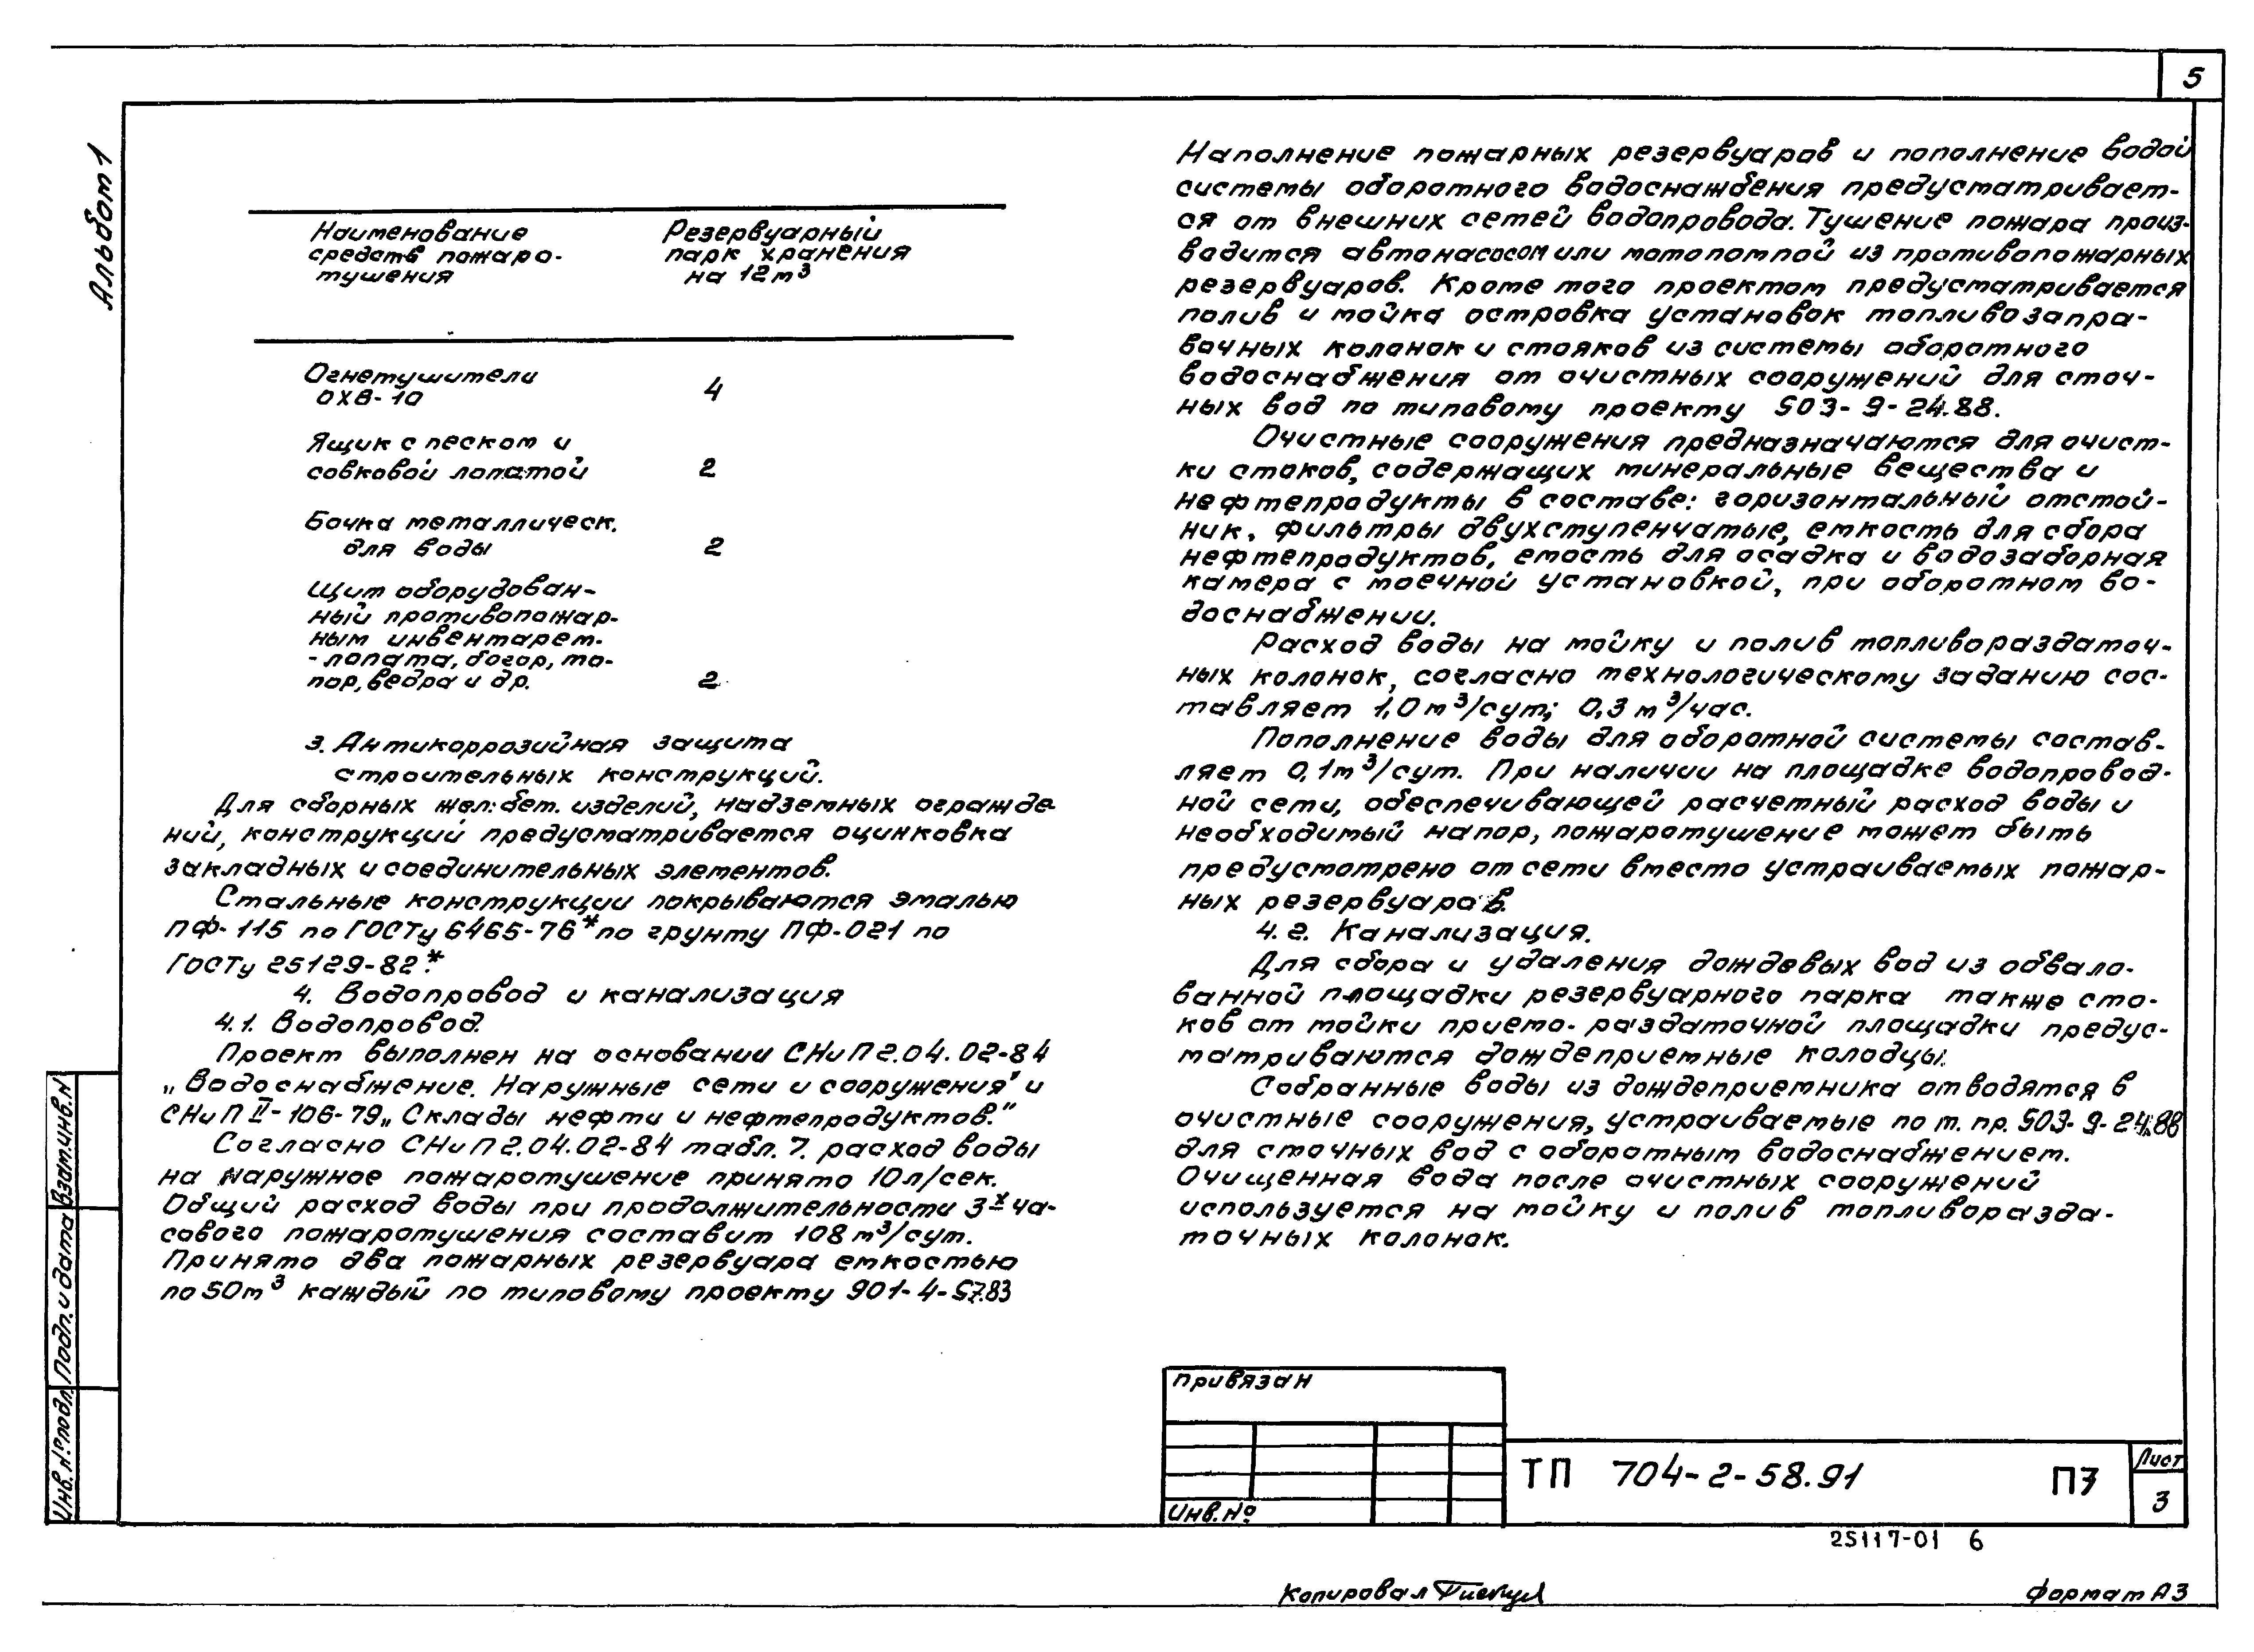 5
Альбом 1
Наименование
средств пожаро-
тушения
Резервуарный
парк хранения
на 12м³
Огнетушители
ОХВ-10
4
Ящик с песком и
совковой лопатой
2
Бочка металлическ.
для воды
2
Щит оборудован-
ный противопожар-
ным инвентарем-
-лопата, богор, то-
пор, ведра и др.
2
3. Антикоррозийная защита
строительных конструкций.
Для сборных жел:бет. изделий, надземных огражде-
ний, конструкций предусматривается оцинковка
закладных и соединительных элементов.
Стальные конструкции покрываются эмалью
ПФ-115 по ГОСТу 6465-76* по грунту ПФ-021 по
ГОСТу 25129-82*.
4. Водопровод и канализация
4.1. Водопровод.
Проект выполнен на основании СНиП 2.04.02-84
„Водоснабжение. Наружные сети и сооружения" и
СНиП II-106-79 „Склады нефти и нефтепродуктов."
Согласно СНиП 2.04.02-84 табл. 7. расход воды
на наружное пожаротушение принято 10 л/сек.
Общий расход воды при продолжительности 3х ча-
сового пожаротушения составит 108 м³/сут.
Принято два пожарных резервуара емкостью
по 50м³ каждый по типовому проекту 901-4-57.83
Наполнение пожарных резервуаров и пополнение водой
системы оборотного водоснаждения предусматривает-
ся от внешних сетей водопровода. Тушение пожара произ-
водится автонасосом или мотопомпой из противопожарных
резервуаров. Кроме того проектом предусматривается
полив и мойка островка установок топливозапра-
вочных колонок и стояков из системы оборотного
водоснабжения от очистных сооружений для сточ-
ных вод по типовому проекту 503-9-24.88.
Очистные сооружения предназначаются для очист-
ки стоков, содержащих минеральные вещества и
нефтепродукты в составе: горизонтальный отстой-
ник, фильтры двухступенчатые, емкость для сбора
нефтепродуктов, емость для осадка и водозаборная
камера с моечной установкой, при оборотном во-
доснабжении.
Расход воды на мойку и полив топливораздаточ-
ных колонок, согласно технологическому заданию сос-
тавляет 1,0 м³/сут; 0,3 м³/час.
Пополнение воды для оборотной системы состав-
ляет 0,1м³/сут. При наличии на площадке водопровод-
ной сети, обеспечивающей расчетный расход воды и
необходимый напор, пожаротушение может быть
предусмотрено от сети вместо устраиваемых пожар-
ных резервуаров.
4.2. Канализация.
Для сбора и удаления дождевых вод из обвало-
ванной площадки резервуарного парка также сто-
ков от мойки приемо-раздаточной площадки предус-
матриваются дождеприемные колодцы.
Собранные воды из дождеприемника отводятся в
очистные сооружения, устраиваемые по т. пр. 503-9-24.88
для сточных вод с оборотным водоснабжением.
Очищенная вода после очистных сооружений
используется на мойку и полив топливоразда-
точных колонок.
Взам.инв.N
Подп. и дата
Инв. N° подл.
привязан
Инв. N°
ТП 704-2-58.91
ПЗ
Лист
3
25117-01 6
Копировал
формат А3